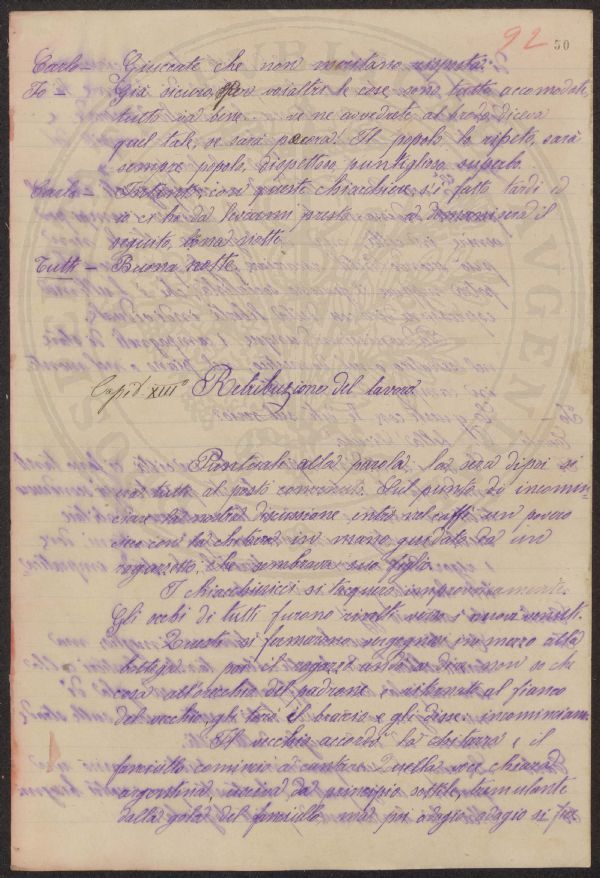 92 50
Carlo — Giuccate che non meritano risposta.
Io — Già sicuro, per voialtri le cose sono tutte accomodate
tutto va bene. ve ne avvedrete al brodo, diceva
quel tale, se sarà pecora! Il popolo lo ripeto, sarà
sempre popolo, dispettoso, puntiglioso, superbo.
Carlo — Intanto con queste chiacchiere s'è fatto tardi ed
io ci ho da levarmi presto a domani sera il
seguito, buona notte.
Tutti — Buona notte.
Capit. XIII° Retribuzione del lavoro
Puntuali alla parola, la sera dipoi si
era tutti al posto convenuto. Sul punto di incomin-
ciare la nostra discussione entrò nel caffè un povero
cieco con la chitarra in mano guidato da un
ragazzetto, che sembrava suo figlio.
I chiacchierici si tacquero improvvisamente.
Gli occhi di tutti furono rivolti verso i nuovi venuti.
Questi si fermarono in mezzo alla
bottega poi il ragazzo andò a dire non so che
cosa all'orecchio del padrone, e ritornato al fianco
del vecchio, gli toccò il braccio e gli disse: incominciam.
Il vecchio accordò la chitarra e il
fanciullo cominciò a cantare. Quella voce chiara
argentina usciva da principio sottile, tremulante
dalla gola del fanciullo, ma poi adagio adagio si fece